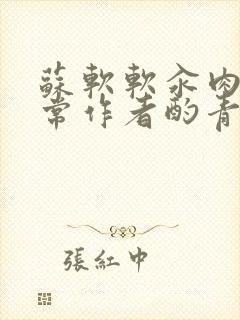 蘇軟軟汆肉
常作者酌青
張紅中